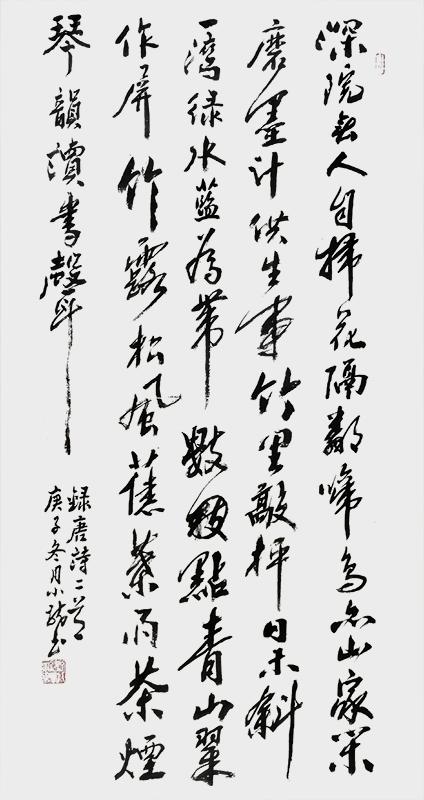 深院無人自掃花隔鄰啼鳥亦山家閑
磨墨汁供生事竹里敲枰日未斜
一灣綠水藍為帶數點青山翠
作屏竹露松風蕉葉雨茶煙
琴韻讀書聲
錄唐詩二首
庚子冬月小龍書